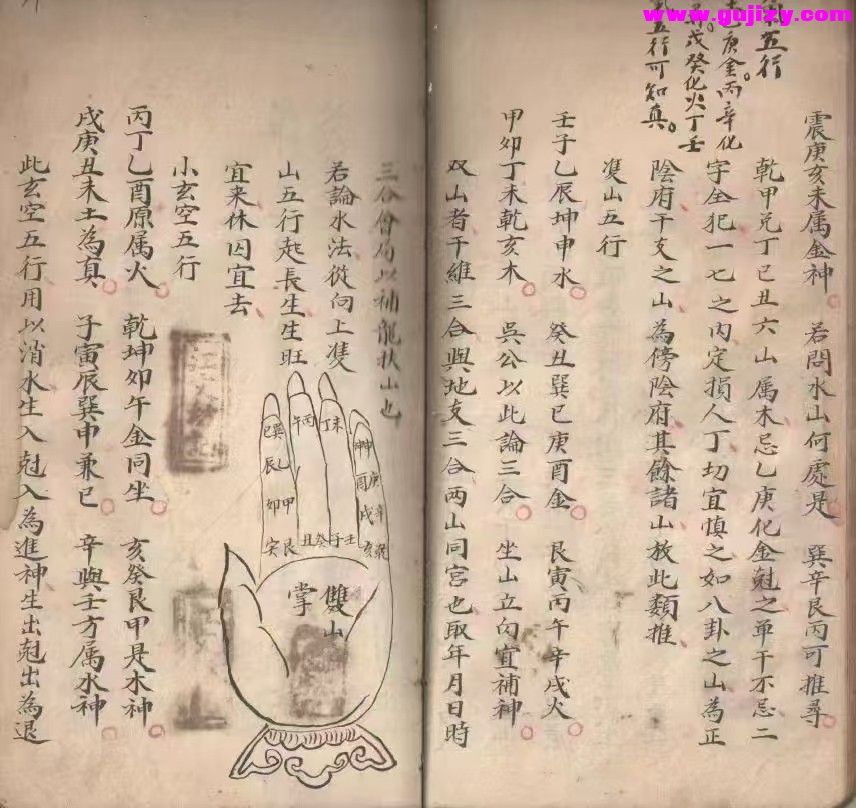 www.gujizy.com
五行
庚金丙辛化
戊癸化火丁壬
五行可知真
震庚亥未属金神 若問水山何處是 巽辛艮丙可推尋
乾甲兑丁巳丑六山属木忌乙庚化金尅之单干不忌二
字全犯一七之内定損人丁切宜慎之如八卦之山為正
陰府干支之山為傍陰府其餘諸山放此類推
雙山五行
壬子乙辰坤申水 癸丑巽巳庚酉金 艮寅丙午辛戌火
甲卯丁未乾亥木 吳公以此論三合 坐山立向宜補神
双山者干維三合與地支三合两山同宮也取年月日時
三合會局以補龍扶山也
若論水法從向上雙
山五行起長生生旺
宜来休囚宜去
小玄空五行
丙丁乙酉原属火 乾坤卯午金同坐 亥癸艮甲是木神
戌庚丑未土為真 子寅辰巽申兼巳 辛與壬方属水神
此玄空五行用以消水生入尅入為進神生出尅出為退
巽巳
乙辰
甲卯
艮寅
丙午
丁未
坤申
庚酉
辛戌
乾亥
壬子癸丑
雙山
掌